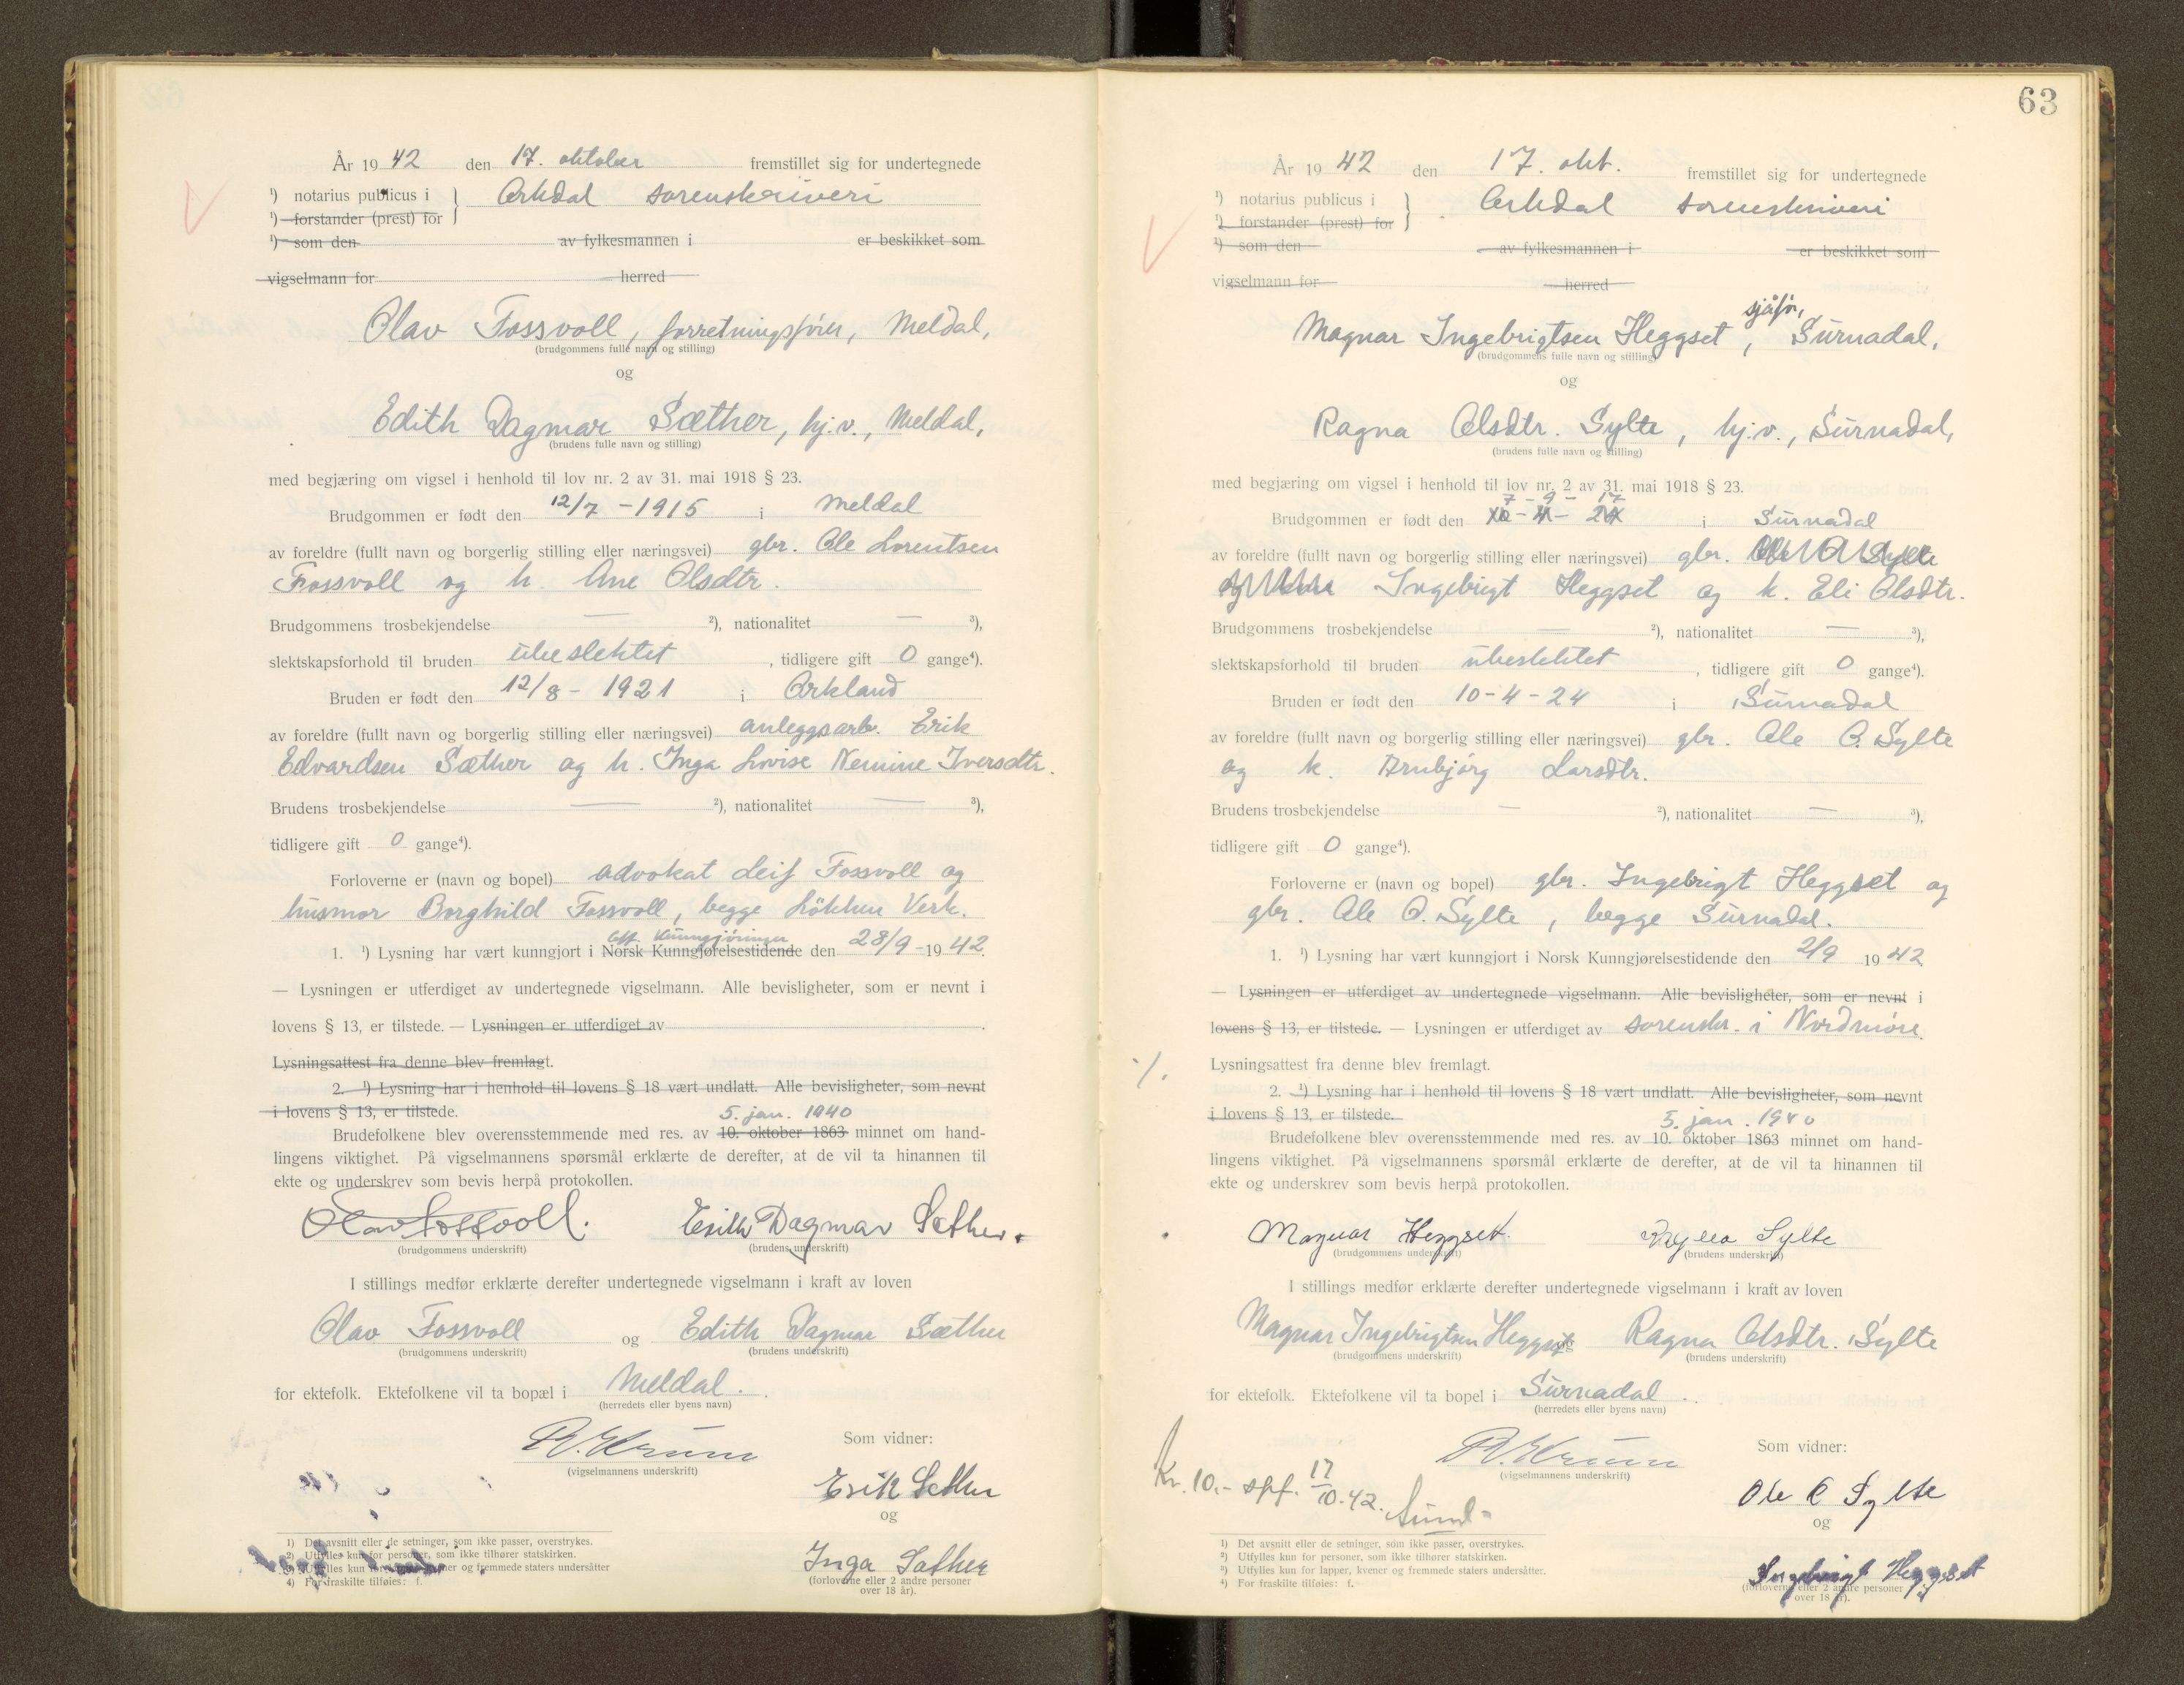 År 1942 den 17. oktober fremstillet sig for undertegnede
1) notarius publicus i } Orkdal sorenskriveri
1) forstander (prest) for
1) som den av fylkesmannen i er beskikket som
vigselmann for herred
Olav Fossvoll, forretningsfører, Meldal,
(brudgommens fulle navn og stilling)
og
Edith Dagmar Sæther, hj.v., Meldal,
(brudens fulle navn og stilling)
med begjæring om vigsel i henhold til lov nr. 2 av 31. mai 1918 § 23.
Brudgommen er født den 12/7 - 1915 i Meldal
av foreldre (fullt navn og borgerlig stilling eller næringsvei) gbr. Ole Lorentsen
Fossvoll og h. Ane Olsdtr.
Brudgommens trosbekjendelse — 2), nationalitet — 3),
slektskapsforhold til bruden ubeslektet, tidligere gift 0 gange4).
Bruden er født den 12/8 - 1921 i Orkland
av foreldre (fullt navn og borgerlig stilling eller næringsvei) anleggsarb. Erik
Edvardsen Sæther og h. Inga Lovise Nemine Iversdtr.
Brudens trosbekjendelse — 2), nationalitet — 3),
tidligere gift 0 gange4).
Forloverne er (navn og bopel) advokat Leif Fossvoll og
husmor Borghild Fossvoll, begge Løkken Verk.
off. Kunngjøringer
1. 1) Lysning har vært kunngjort i Norsk Kunngjørelsestidende den 28/9 - 1942.
— Lysningen er utferdiget av undertegnede vigselmann. Alle bevisligheter, som er nevnt i
lovens § 13, er tilstede. — Lysningen er utferdiget av
Lysningsattest fra denne blev fremlagt.
2. 1) Lysning har i henhold til lovens § 18 vært undlatt. Alle bevisligheter, som nevnt
i lovens § 13, er tilstede.
5. jan. 1940
Brudefolkene blev overensstemmende med res. av 10. oktober 1863 minnet om hand-
lingens viktighet. På vigselmannens spørsmål erklærte de derefter, at de vil ta hinannen til
ekte og underskrev som bevis herpå protokollen.
Olav Fossvoll. Edith Dagmar Sæther.
(brudgommens underskrift) (brudens underskrift)
I stillings medfør erklærte derefter undertegnede vigselmann i kraft av loven
Olav Fossvoll og Edith Dagmar Sæther
(brudgommens underskrift) (brudens underskrift)
for ektefolk. Ektefolkene vil ta bopæl i Meldal.
(herredets eller byens navn)
Som vidner:
(vigselmannens underskrift)
Erik Sæther
og
Inga Sæther
(forloverne eller 2 andre personer
over 18 år).
1) Det avsnitt eller de setninger, som ikke passer, overstrykes.
2) Utfylles kun for personer, som ikke tilhører statskirken.
3) Utfylles kun for lapper, kvener og fremmede staters undersåtter
4) For fraskilte tilføies: f.
63
År 1942 den 17. okt. fremstillet sig for undertegnede
1) notarius publicus i } Orkdal sorenskriveri
1) forstander (prest) for
1) som den av fylkesmannen i er beskikket som
vigselmann for herred
sjåfør,
Magnar Ingebrigtsen Heggset, Surnadal,
(brudgommens fulle navn og stilling)
og
Ragna Olsdtr. Sylte, hj.v., Surnadal,
(brudens fulle navn og stilling)
med begjæring om vigsel i henhold til lov nr. 2 av 31. mai 1918 § 23.
7 - 9 - 17
Brudgommen er født den 10 - 4 - 24 i Surnadal
av foreldre (fullt navn og borgerlig stilling eller næringsvei) gbr. Ole O. Sylte
og Ingebrigt Heggset og k. Eli Olsdtr.
Brudgommens trosbekjendelse — 2), nationalitet — 3),
slektskapsforhold til bruden ubeslektet, tidligere gift 0 gange4).
Bruden er født den 10 - 4 - 24 i Surnadal
av foreldre (fullt navn og borgerlig stilling eller næringsvei) gbr. Ole O. Sylte
og k. Brubjørg Larsdtr.
Brudens trosbekjendelse — 2), nationalitet — 3),
tidligere gift 0 gange4).
Forloverne er (navn og bopel) gbr. Ingebrigt Heggset og
gbr. Ole O. Sylte, begge Surnadal.
1. 1) Lysning har vært kunngjort i Norsk Kunngjørelsestidende den 2/9 1942
— Lysningen er utferdiget av undertegnede vigselmann. Alle bevisligheter, som er nevnt i
lovens § 13, er tilstede. — Lysningen er utferdiget av sorenskr. i Nordmøre
Lysningsattest fra denne blev fremlagt.
2. 1) Lysning har i henhold til lovens § 18 vært undlatt. Alle bevisligheter, som nevnt
i lovens § 13, er tilstede.
5. jan. 1940
Brudefolkene blev overensstemmende med res. av 10. oktober 1863 minnet om hand-
lingens viktighet. På vigselmannens spørsmål erklærte de derefter, at de vil ta hinannen til
ekte og underskrev som bevis herpå protokollen.
Magnar Heggset. Ragna Sylte
(brudgommens underskrift) (brudens underskrift)
I stillings medfør erklærte derefter undertegnede vigselmann i kraft av loven
Magnar Ingebrigtsen Heggset og Ragna Olsdtr. Sylte
(brudgommens underskrift) (brudens underskrift)
for ektefolk. Ektefolkene vil ta bopel i Surnadal.
(herredets eller byens navn)
Som vidner:
(vigselmannens underskrift)
Kr. 10.- opf. 17/10.42.
Ole O Sylte
og
Ingebrigt Heggset
(forloverne eller 2 andre personer
over 18 år).
1) Det avsnitt eller de setninger, som ikke passer, overstrykes.
2) Utfylles kun for personer, som ikke tilhører statskirken.
3) Utfylles kun for lapper, kvener og fremmede staters undersåtter.
4) For fraskilte tilføies: f.